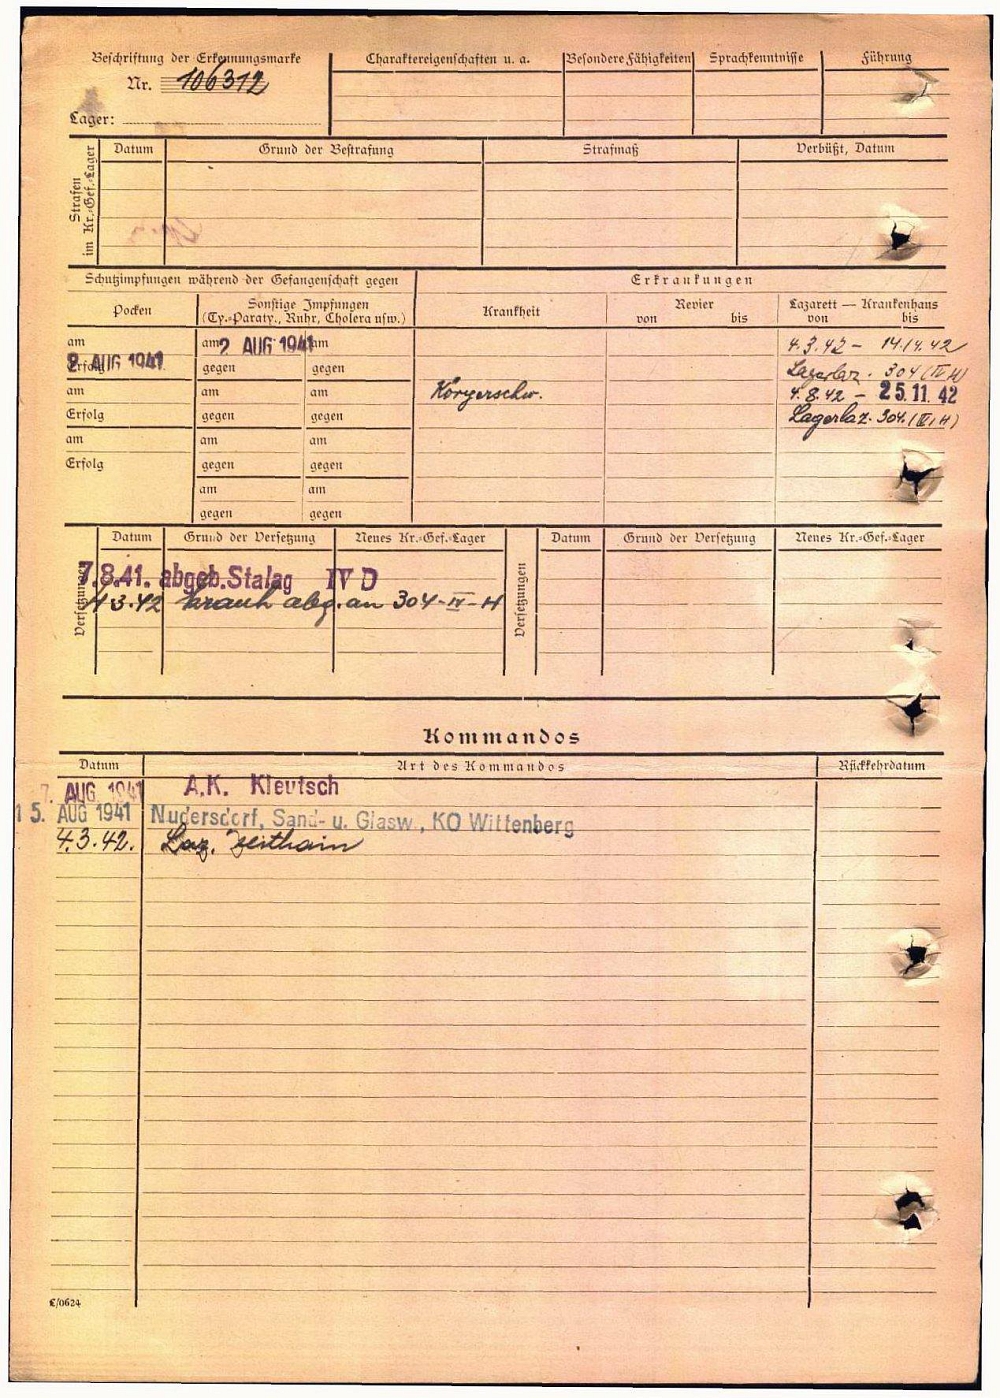 Beschriftung der Erkennungsmarke
Nr. 106312
Lager:
Charaktereigenschaften u. a.
Besondere Fähigkeiten
Sprachkenntnisse
Führung
Strafen im Kr.-Gef.-Lager
Datum
Grund der Bestrafung
Strafmaß
Verbüßt, Datum
Schutzimpfungen während der Gefangenschaft gegen
Erkrankungen
Pocken
Sonstige Impfungen
(Ty.-Paraty., Ruhr, Cholera usw.)
Krankheit
Revier
von bis
Lazarett — Krankenhaus
von bis
am
8. AUG 1941
Erfolg
am 2 AUG 1941 am
gegen gegen
4.3.42 – 14.IV.42
Lagerlaz. 304 (IV H)
am
Erfolg
am am
gegen gegen
Körperschw.
4.8.42 – 25.11.42
Lagerlaz. 304 (IV H)
am
Erfolg
am am
gegen gegen
am am
gegen gegen
Versetzungen
Datum
Grund der Versetzung
Neues Kr.-Gef.-Lager
Versetzungen
Datum
Grund der Versetzung
Neues Kr.-Gef.-Lager
7.8.41. abgeb. Stalag IV D
4 3.42 krank abg. an 304-IV-H
Kommandos
Datum
Art des Kommandos
Rückkehrdatum
7. AUG 1941 A.K. Kleutsch
15. AUG 1941 Nudersdorf, Sand- u. Glasw., KO Wittenberg
4.3.42. Laz. Zeithain
E/0624